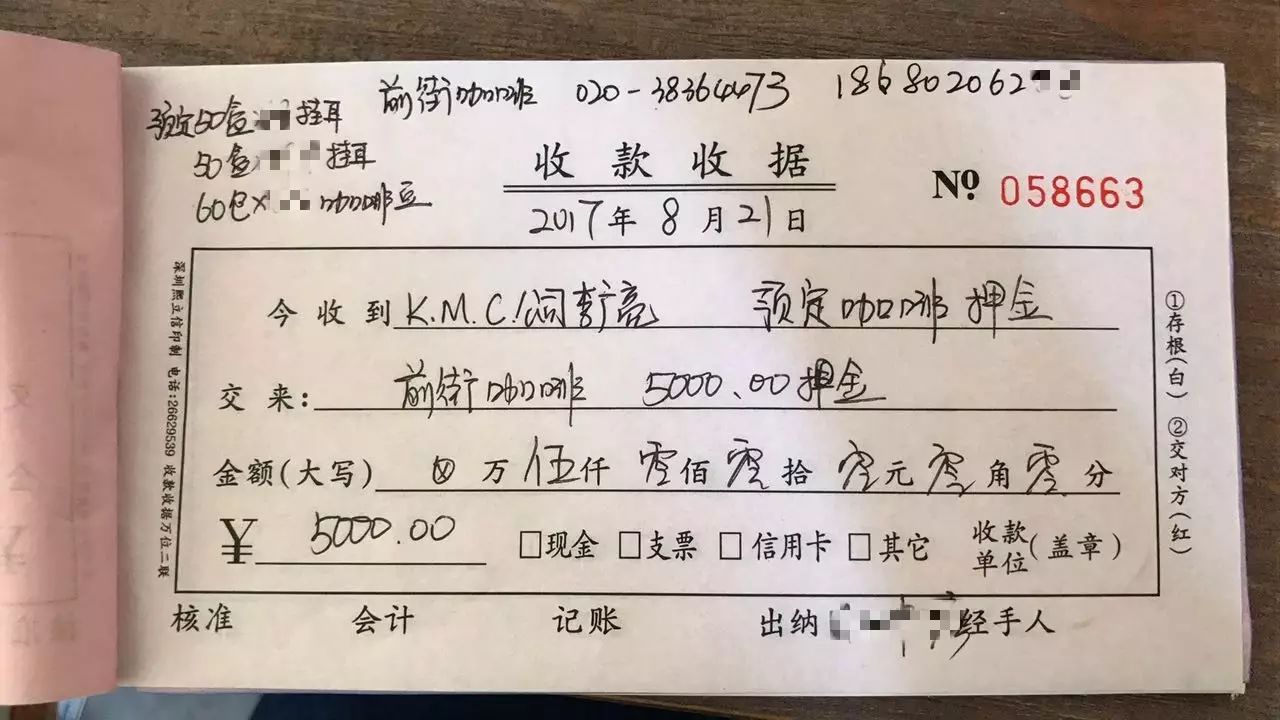 前街咖啡 020-38364473 186802062
预定50盒 挂耳
50盒× 挂耳
60包× 咖啡豆
收款收据
№ 058663
2017年8月21日
今收到 K.M.C./阎 亮 预定咖啡押金
交来: 前街咖啡 5000.00押金
金额(大写) 万伍仟零佰零拾零元零角零分
¥ 5000.00 □现金 □支票 □信用卡 □其它 收款单位(盖章)
核准 会计 记账 出纳 经手人
深圳熙立信印制 电话:26629539 收款收据万位二联
①存根(白) ②交对方(红)